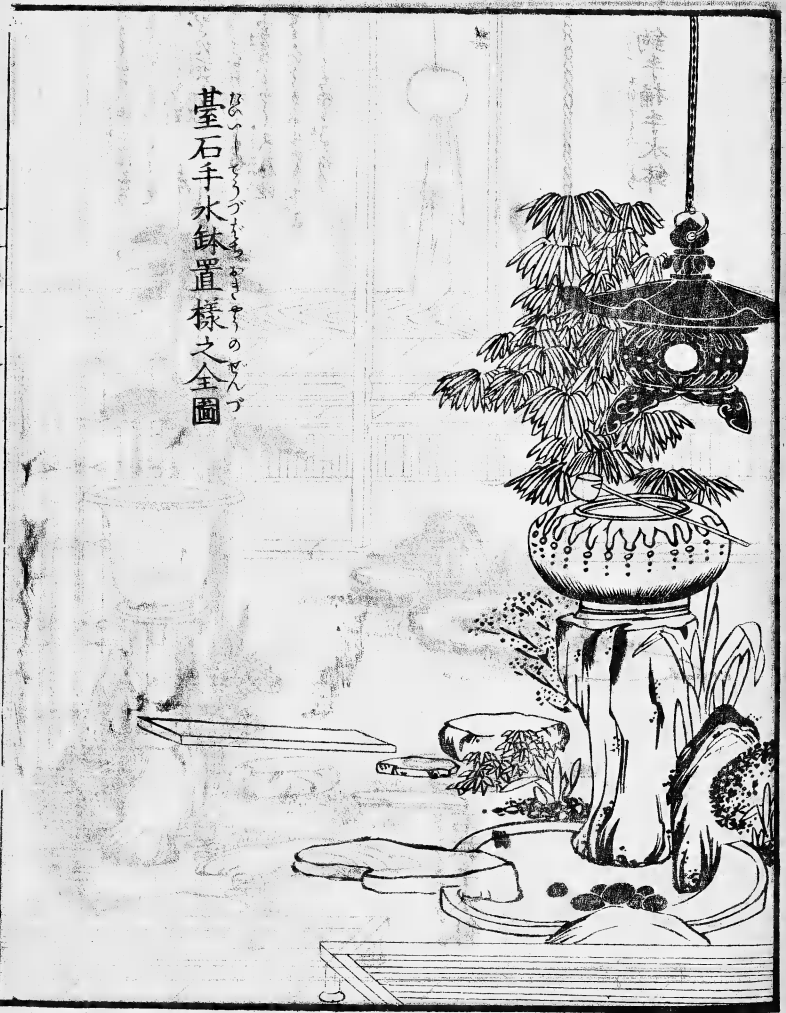 臺石手水鉢置樣之全圖
だいいしてうづばちおきやうのぜんづ